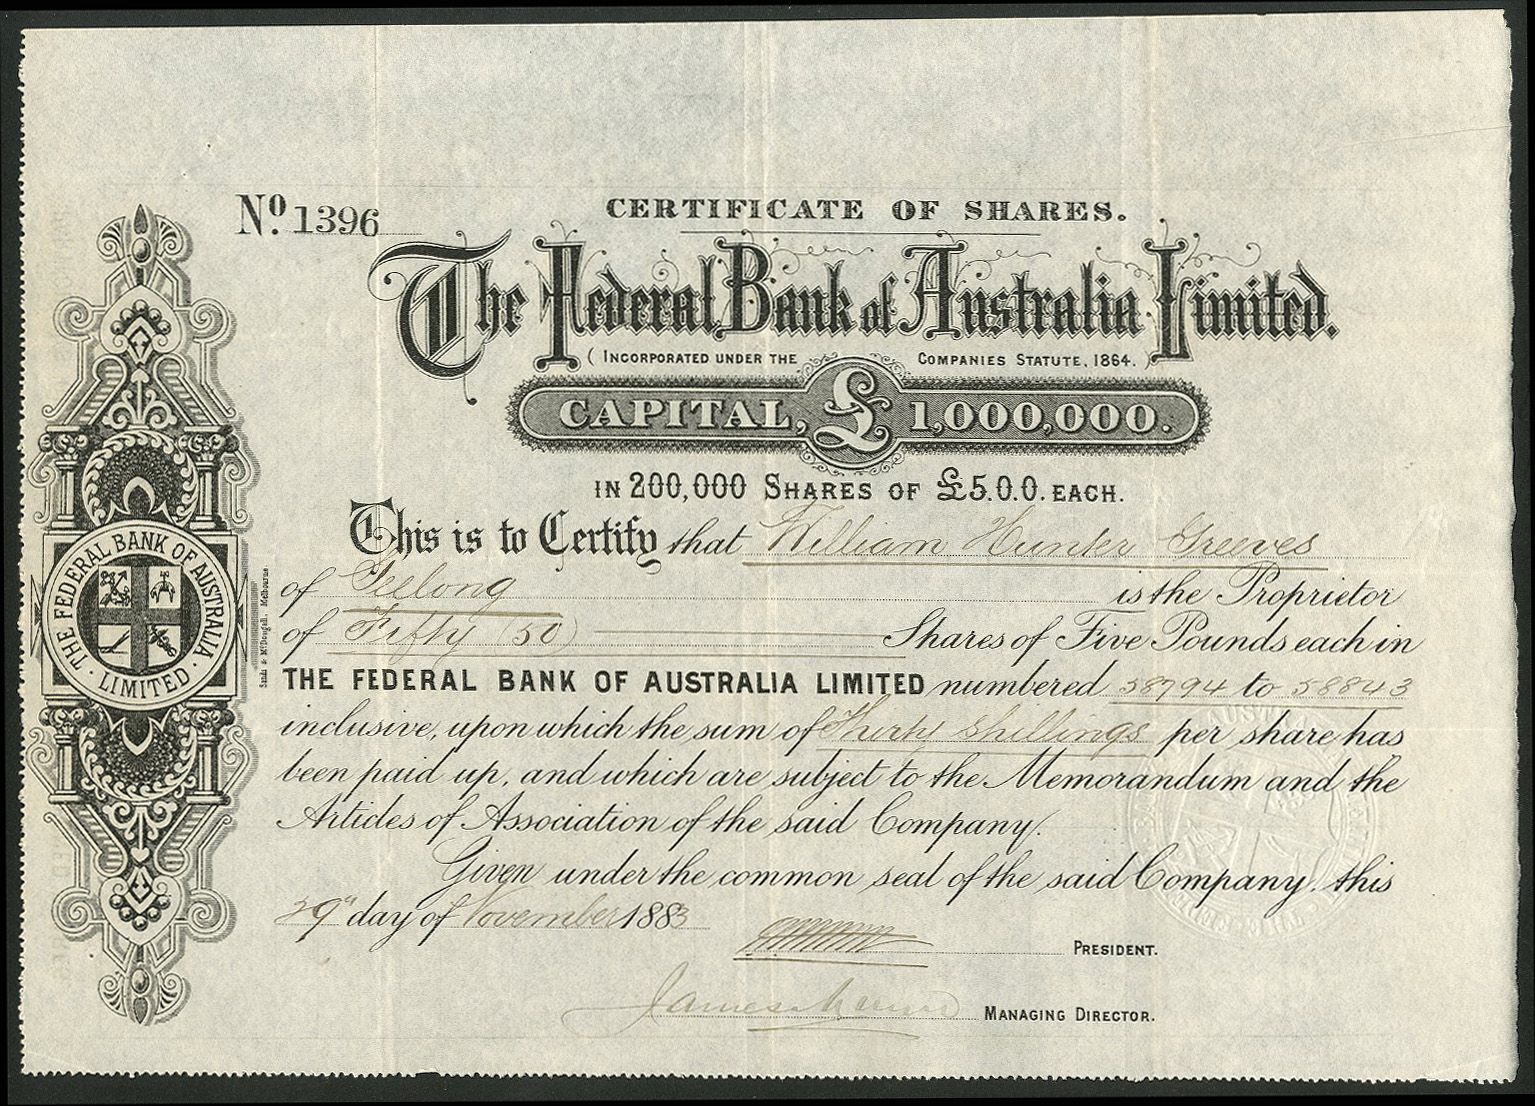 No. 1396
CERTIFICATE OF SHARES.
The Federal Bank of Australia Limited.
( INCORPORATED UNDER THE COMPANIES STATUTE, 1864. )
CAPITAL, £ 1,000,000.
IN 200,000 SHARES OF £5.0.0. EACH.
This is to Certify that William Hunter Greeves
of Geelong is the Proprietor
of Fifty (50) Shares of Five Pounds each in
THE FEDERAL BANK OF AUSTRALIA LIMITED numbered 58794 to 58843
inclusive, upon which the sum of Thirty Shillings per share has
been paid up, and which are subject to the Memorandum and the
Articles of Association of the said Company.
Given under the common seal of the said Company, this
29th day of November 1883
PRESIDENT.
James MANAGING DIRECTOR.
THE FEDERAL BANK OF AUSTRALIA · LIMITED ·
Sands & McDougall, Melbourne